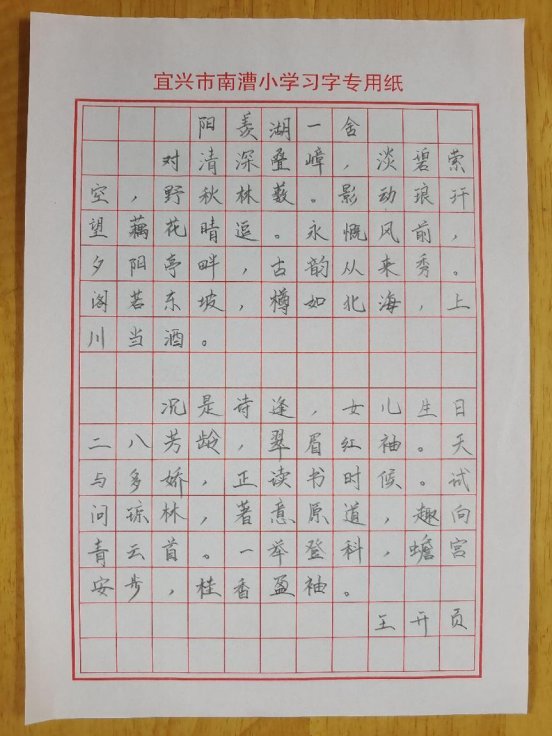 宜兴市南漕小学习字专用纸
阳羡湖一舍
对清深叠嶂，淡碧索
空，野秋林薮。影动琅玕
望藕花晴逗。永慨风前，
夕阳亭畔，古韵从来秀。
阁若东坡，樽如北海，上
川当酒。
况是诗逢，女儿生日
二八芳龄，翠眉红袖。天
与多娇，正读书时候。试
问琼林，著意原道，趣向
青云首。一举登科，蟾宫
安步，桂香盈袖。
王开页